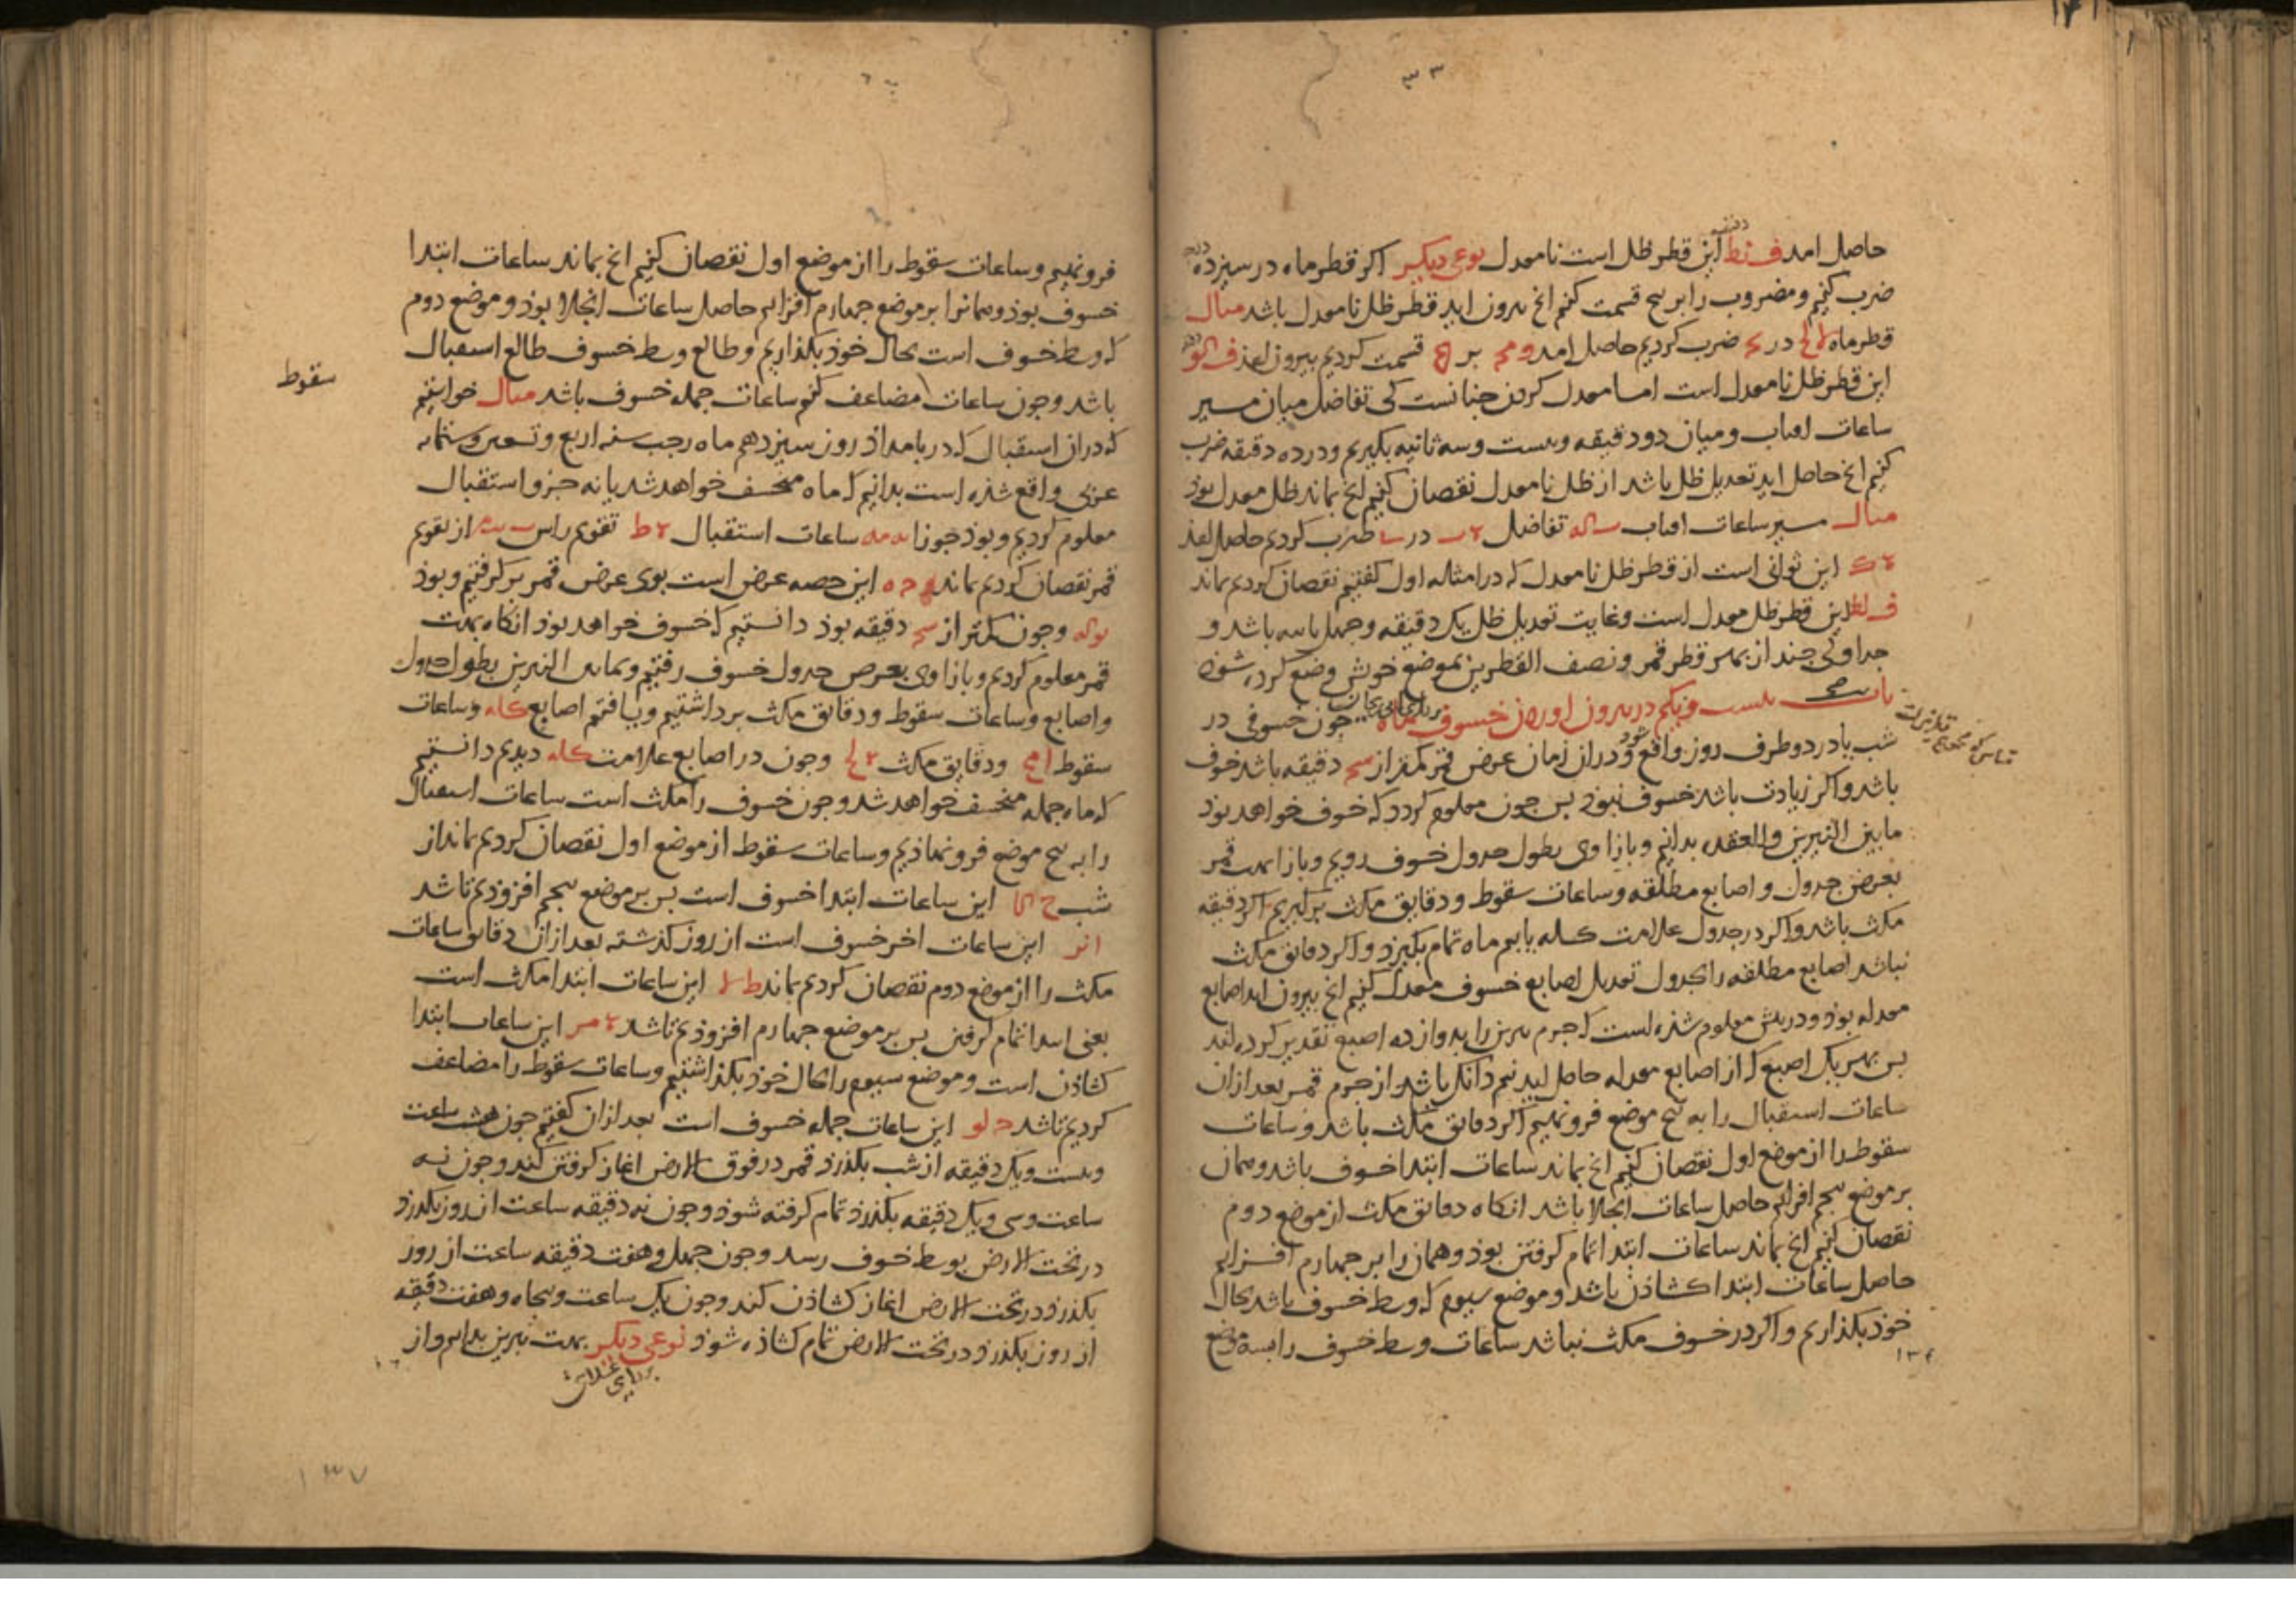 حاصل امد ف نط این قطر ظل است نامعدل نوعی دیکر اکر قطر ماه در سیزده
ضرب کنیم و مضروب را بر پنج قسمت کنیم انچ بیرون اید قطر ظل نامعدل باشد مثال
قطر ماه در ضرب کردیم حاصل امد بر قسمت کردیم بیرون امذ
این قطر ظل نامعدل است اما معدل کردن چنانست کی تفاضل میان مسیر
ساعات افتاب و میان دو دقیقه و بیست و سه ثانیه بکیریم و در ده دقیقه ضرب
کنیم انچ حاصل اید تعدیل ظل باشد از ظل نامعدل نقصان کنیم انچ بماند ظل معدل بوذ
مثال مسیر ساعات افتاب تفاضل در ضرب کردیم حاصل امذ
این ثوانی است از قطر ظل نامعدل که در امثاله اول کفتیم نقصان کردیم بماند
ف لط این قطر ظل معدل است و غایت تعدیل ظل یک دقیقه و چهل ثانیه باشد و
جداولی چند از بهر قطر قمر و نصف القطرین بموضع خوش وضع کرده شوذ
باب بیست و یکم در بیرون اوردن خسوف ماه چون خسوفی در
شب یا در دو طرف روز واقع شود و در ان زمان عرض قمر کمتر از سح دقیقه باشد خسوف
باشد و اکر زیادت باشد خسوف نبوذ بس چون معلوم کردد که خسوف خواهد بوذ
ما بین النیرین والعقده بدانیم و بازا وی بطول جدول خسوف رویم و بازا بهت قمر
بعرض جدول و اصابع مطلقه و ساعات سقوط و دقایق مکث برکیریم اکر دقیقه
مکث باشد و اکر در جدول علامت کله یابیم ماه تمام بکیرد و اکر دقایق مکث
نباشد اصابع مطلقه را بجدول تعدیل اصابع خسوف معدل کنیم انچ بیرون اید اصابع
معدله بوذ و در بیش معلوم شذه است که جرم نیرین را بدوازده اصبع تقدیر کرده اند
بس بهر یک اصبع که از اصابع معدله حاصل اید نیم دانک باشد از جرم قمر بعد از ان
ساعات استقبال را به پنج موضع فرو نهیم اکر دقایق مکث باشد و ساعات
سقوط را از موضع اول نقصان کنیم انچ بماند ساعات ابتدا خسوف باشد و همان
بر موضع پنجم افزایم حاصل ساعات انجلا باشد انکاه دقایق مکث از موضع دوم
نقصان کنیم انچ بماند ساعات ابتدا تمام کرفتن بوذ و همان را بر چهارم افزایم
حاصل ساعات ابتدا کشاذن باشد و موضع سیوم که وسط خسوف باشد بحال
خوذ بکذاریم و اکر در خسوف مکث نباشد ساعات وسط خسوف را بسه موضع
فرو نهیم و ساعات سقوط را از موضع اول نقصان کنیم انچ بماند ساعات ابتدا
خسوف بوذ و همانرا بر موضع چهارم افزایم حاصل ساعات انجلا بوذ و موضع دوم
که وسط خسوف است بحال خوذ بکذاریم و طالع وسط خسوف طالع استقبال
باشد و چون ساعات مضاعف کنیم ساعات جمله خسوف باشد مثال خواستیم
سقوط
که در ان استقبال که در بامداذ روز سیزدهم ماه رجب سنه اربع و تسعین و ستمایه
عربی واقع شذه است بدانیم که ماه منخسف خواهد شد یا نه جزو استقبال
معلوم کردیم و بوذ جوزا ساعات استقبال تقویم راس از تقویم
قمر نقصان کردیم بماند این حصه عرض است بوی عرض قمر برکرفتیم و بوذ
و چون کمتر از سح دقیقه بوذ دانستیم که خسوف خواهد بوذ انکاه بهت
قمر معلوم کردیم و بازا وی بعرض جدول خسوف رفتیم و بمابین النیرین بطول جدول
و اصابع و ساعات سقوط و دقایق مکث برداشتیم و یافتیم اصابع کله و ساعات
سقوط و دقایق مکث و چون در اصابع علامت کله دیدیم دانستیم
که ماه جمله منخسف خواهد شد و چون خسوف را مکث است ساعات استقبال
را به پنج موضع فرو نهاذیم و ساعات سقوط از موضع اول نقصان کردیم بماند از
شب این ساعات ابتدا خسوف است بس بر موضع پنجم افزوذیم تا شد
این ساعات اخر خسوف است از روز کذشته بعد از ان دقایق ساعات
مکث را از موضع دوم نقصان کردیم بماند این ساعات ابتدا مکث است
یعنی ابتدا تمام کرفتن بس بر موضع چهارم افزوذیم تا شد این ساعات ابتدا
کشاذن است و موضع سیوم را بحال خوذ بکذاشتیم و ساعات سقوط را مضاعف
کردیم تا شد این ساعات جمله خسوف است بعد از ان کفتیم چون هشت ساعت
و بیست و یک دقیقه از شب بکذرد قمر در فوق الارض اغاز کرفتن کند و چون نه
ساعت و سی و یک دقیقه بکذرد تمام کرفته شوذ و چون نه دقیقه ساعت از روز بکذرد
در تحت الارض بوسط خسوف رسد و چون چهل و هفت دقیقه ساعت از روز
بکذرد در تحت الارض اغاز کشاذن کند و چون یک ساعت و پنجاه و هفت دقیقه
از روز بکذرد در تحت الارض تمام کشاذه شوذ نوعی دیکر بهت نیرین بدانیم و از
۱۳۷